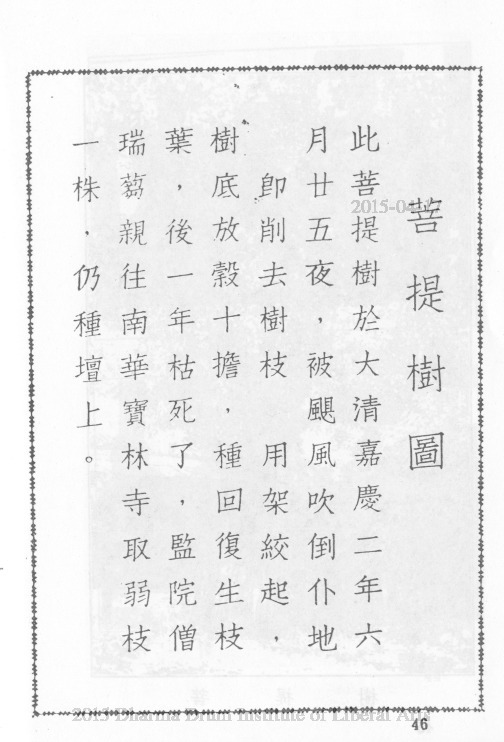 菩提樹圖
此菩提樹於大清嘉慶二年六
月廿五夜，被颶風吹倒仆地
即削去樹枝　用架絞起，
樹底放穀十擔，種回復生枝
葉，後一年枯死了，監院僧
瑞蒭親往南華寶林寺取弱枝
一株，仍種壇上。
46
2015 Dharma Drum Institute of Liberal Arts